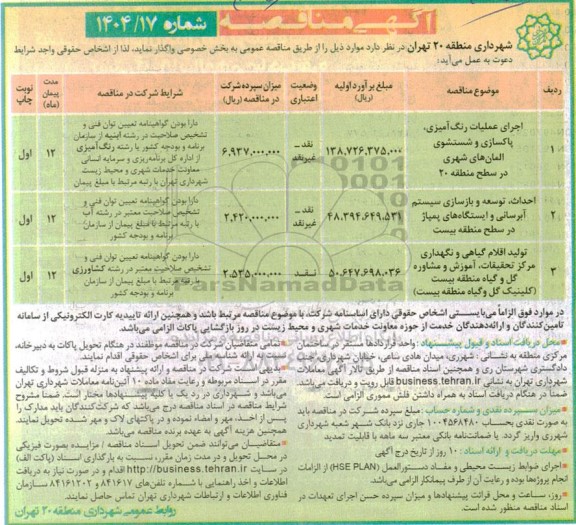 آگهی مناقصه
شماره ۱۴۰۴/۱۷
شهرداری منطقه ۲۰ تهران در نظر دارد موارد ذیل را از طریق مناقصه عمومی به بخش خصوصی واگذار نماید، لذا از اشخاص حقوقی واجد شرایط
دعوت به عمل می‌آید:
ردیف
موضوع مناقصه
مبلغ برآورد اولیه (ریال)
وضعیت اعتباری
میزان سپرده شرکت در مناقصه (ریال)
شرایط شرکت در مناقصه
مدت پیمان (ماه)
نوبت چاپ
۱
اجرای عملیات رنگ‌آمیزی،
پاکسازی و شستشوی
المان‌های شهری
در سطح منطقه ۲۰
۱۳۸.۷۲۶.۳۷۵.۰۰۰
نقد ـ غیرنقد
۶.۹۳۷.۰۰۰.۰۰۰
دارا بودن گواهینامه تعیین توان فنی و
تشخیص صلاحیت در رشته ابنیه از سازمان
برنامه و بودجه کشور یا رشته رنگ‌آمیزی
از اداره کل برنامه‌ریزی و سرمایه انسانی
معاونت خدمات شهری و محیط زیست
شهرداری تهران با رتبه مرتبط با مبلغ پیمان
۱۲
اول
۲
احداث، توسعه و بازسازی سیستم
آبرسانی و ایستگاه‌های پمپاژ
در سطح منطقه بیست
۴۸.۳۹۴.۶۴۹.۵۳۱
نقد ـ غیرنقد
۲.۴۲۰.۰۰۰.۰۰۰
دارا بودن گواهینامه تعیین توان فنی و
تشخیص صلاحیت معتبر در رشته آب
با رتبه مرتبط با مبلغ پیمان از سازمان
برنامه و بودجه کشور
۱۲
اول
۳
تولید اقلام گیاهی و نگهداری
مرکز تحقیقات، آموزش و مشاوره
گل و گیاه منطقه بیست
(کلینیک گل وگیاه منطقه بیست)
۵۰.۶۴۷.۶۹۸.۰۳۶
نقد
۲.۵۳۵.۰۰۰.۰۰۰
دارا بودن گواهینامه تعیین توان فنی و
تشخیص صلاحیت معتبر در رشته کشاورزی
با رتبه مرتبط با مبلغ پیمان از سازمان
برنامه و بودجه کشور
۱۲
اول
ParsNamadData
در موارد فوق الزاماً می‌بایستی اشخاص حقوقی دارای اساسنامه شرکت با موضوع مناقصه مرتبط باشد و همچنین ارائه تاییدیه کارت الکترونیکی از سامانه
تامین‌کنندگان و ارائه‌دهندگان خدمت از حوزه معاونت خدمات شهری و محیط زیست در روز بازگشایی پاکات الزامی می‌باشد.
محل دریافت اسناد و قبول پیشنهاد: واحد قراردادها مستقر در ساختمان
مرکزی منطقه به نشانی: شهرری، میدان هادی ساعی، خیابان شهرداری،
دادگستری شهرستان ری و همچنین اسناد مناقصه از طریق تالار آگهی معاملات
شهرداری تهران به نشانی business.tehran.ir قابل رویت و دریافت می‌باشد.
ضمناً در هنگام دریافت اسناد به همراه داشتن فلش مموری الزامی است.
میزان سپرده نقدی و شماره حساب: مبلغ سپرده شرکت در مناقصه باید
به صورت نقدی بحساب ۱۰۰۴۵۶۸۴۸۰ جاری نزد بانک شهر شعبه شهرداری
شهرری واریز گردد. یا ضمانت‌نامه بانکی معتبر سه ماهه با قابلیت تمدید
مهلت دریافت و ارائه اسناد: ۱۰ روز از تاریخ درج آگهی
اجرای ضوابط زیست محیطی و مفاد دستورالعمل (HSE PLAN) از الزامات
انجام پروژه‌ها بوده و رعایت آن از طرف پیمانکار الزامی می‌باشد.
روز، ساعت و محل قرائت پیشنهادها و میزان سپرده حسن اجرای تعهدات در
اسناد مناقصه منظور شده است.
تمامی متقاضیان شرکت در مناقصه موظفند در هنگام تحویل پاکات به دبیرخانه،
نسبت به ارائه شناسه ملی برای اشخاص حقوقی اقدام نمایند.
بدیهی است شرکت در مناقصه و ارائه پیشنهاد به منزله قبول شروط و تکالیف
مقرر در اسناد مربوطه و رعایت مفاد ماده ۱۰ آئین‌نامه معاملات شهرداری تهران
می‌باشد و شهرداری در رد یک یا کلیه پیشنهادها مختار است. ضمناً مشروح
شرایط مناقصه در اسناد مناقصه درج می‌باشد که شرکت‌کنندگان باید مدارک را
پس از اخذ، مهر و امضاء نموده و در پاکتهای لاک و مهر شده تحویل نمایند.
همچنین هزینه آگهی به عهده برنده مناقصه می‌باشد.
متقاضیان می‌توانند ضمن تحویل اسناد مناقصه / مزایده بصورت فیزیکی
در محل تحویل و در مدت زمان مقرر، نسبت به بارگذاری اسناد (پاکت الف)
در سایت http://business.tehran.ir اقدام و در صورت نیاز به دریافت
اطلاعات و اخذ راهنمایی با شماره تلفن‌های ۸۴۱۶۱۷ و ۸۴۱۶۱۲۰۲ سازمان
فناوری اطلاعات و ارتباطات شهرداری تهران تماس حاصل نمایند.
روابط عمومی شهرداری منطقه ۲۰ تهران